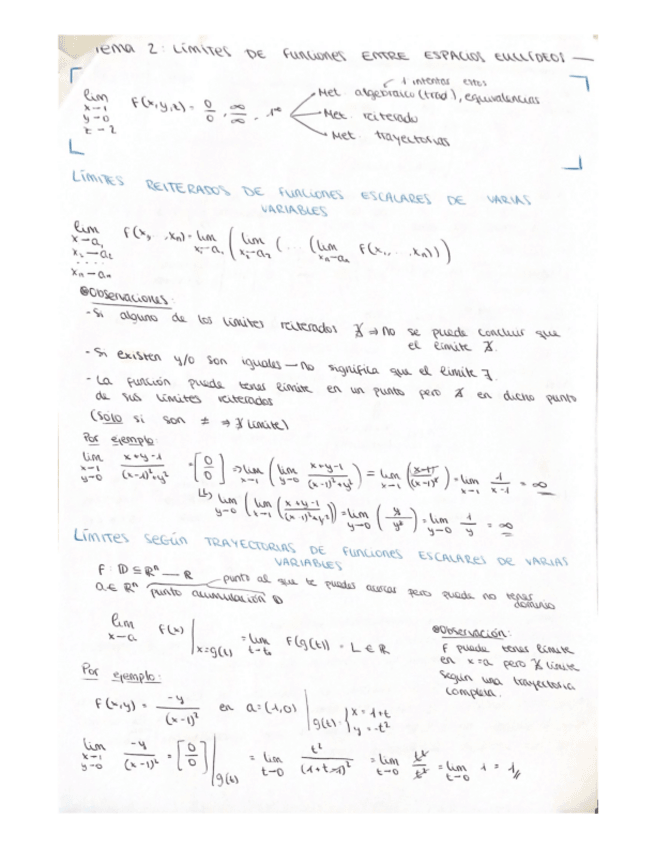 Tema 2: LÍMITES DE FUNCIONES ENTRE ESPACIOS EUCLÍDEOS —
lim x→1 y→0 z→2 F(x,y,z) = 0/0, ∞/∞, 1^∞
↑ intentar estos
Met. algebraico (trad), equivalencias
Met. reiterado
Met. trayectorias
LÍMITES REITERADOS DE FUNCIONES ESCALARES DE VARIAS
VARIABLES
lim x→a₁ x₂→a₂ .... xₙ→aₙ F(x, ..xₙ) = lim x₁→a₁ ( lim x₂→a₂ (... (lim xₙ→aₙ F(x₁,...,xₙ)))
Observaciones:
- Si alguno de los límites reiterados ∄ ⇒ no se puede concluir que
el límite ∄.
- Si existen y/o son iguales — no significa que el límite ∃.
- La función puede tener límite en un punto pero ∄ en dicho punto
de sus límites reiterados
(solo si son ≠ ⇒ ∄ límite)
Por ejemplo:
lim x→1 y→0 x+y-1/(x-1)²+y² = [0/0] ⇒ lim x→1 ( lim y→0 x+y-1/(x-1)²+y² ) = lim x→1 (x-1/(x-1)²) = lim x→1 1/x-1 = ∞
↳ lim y→0 ( lim x→1 ( x+y-1/(x-1)²+y² )) = lim y→0 ( y/y² ) = lim y→0 1/y = ∞
LÍMITES SEGÚN TRAYECTORIAS DE FUNCIONES ESCALARES DE VARIAS
VARIABLES
F: D ⊆ ℝⁿ — ℝ
punto al que te puedes acercar pero puede no tener
dominio
a ∈ ℝⁿ punto acumulación D
lim x→a F(x) | x=g(t) = lim t→t₀ F(g(t)) = L ∈ ℝ
Observación:
F puede tener límite
en x=a pero ∄ límite
según una trayectoria
completa.
Por ejemplo:
F(x,y) = -y/(x-1)² en a=(1,0) | g(t) { x = 1+t y = -t²
lim x→1 y→0 -y/(x-1)² = [0/0] | g(t) = lim t→0 t²/(1+t-1)² = lim t→0 t²/t² = lim t→0 1 = 1//